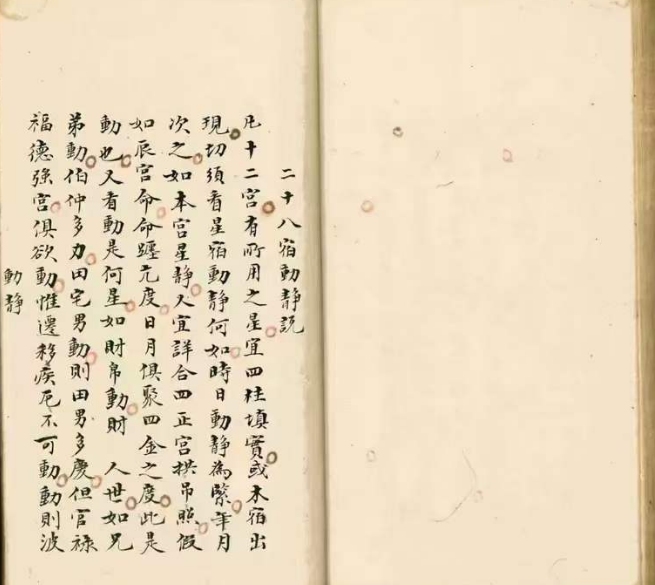 二十八宿動靜説
凡十二宮有所用之星宜四柱填實或本宿出
現切須看星宿動靜何如時日動靜為緊年月
次之如本宮星靜又宜詳合四正宮拱吊照假
如辰宮命命躔亢度日月俱聚四金之度此是
動也又看動是何星如財帛動財 人世如兄
弟動伯仲多力田宅男動則田男多慶但官祿
福德強宮俱欲動惟遷移疾厄不可動動則波
動靜